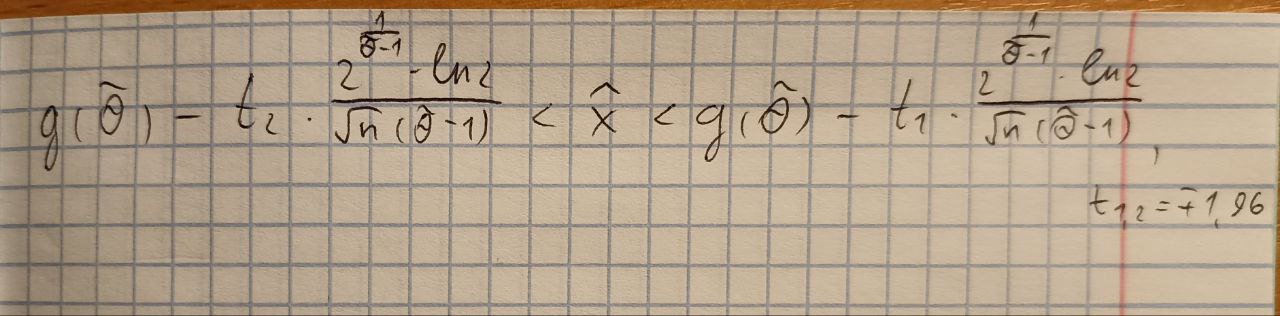 g(θ̃) - t₂ · (2^(1/(θ̃-1)) · ln2)/(√n (θ̃-1)) < x̂ < g(θ̃) - t₁ · (2^(1/(θ̃-1)) · ln2)/(√n (θ̃-1)),
t₁,₂ = ∓1,96